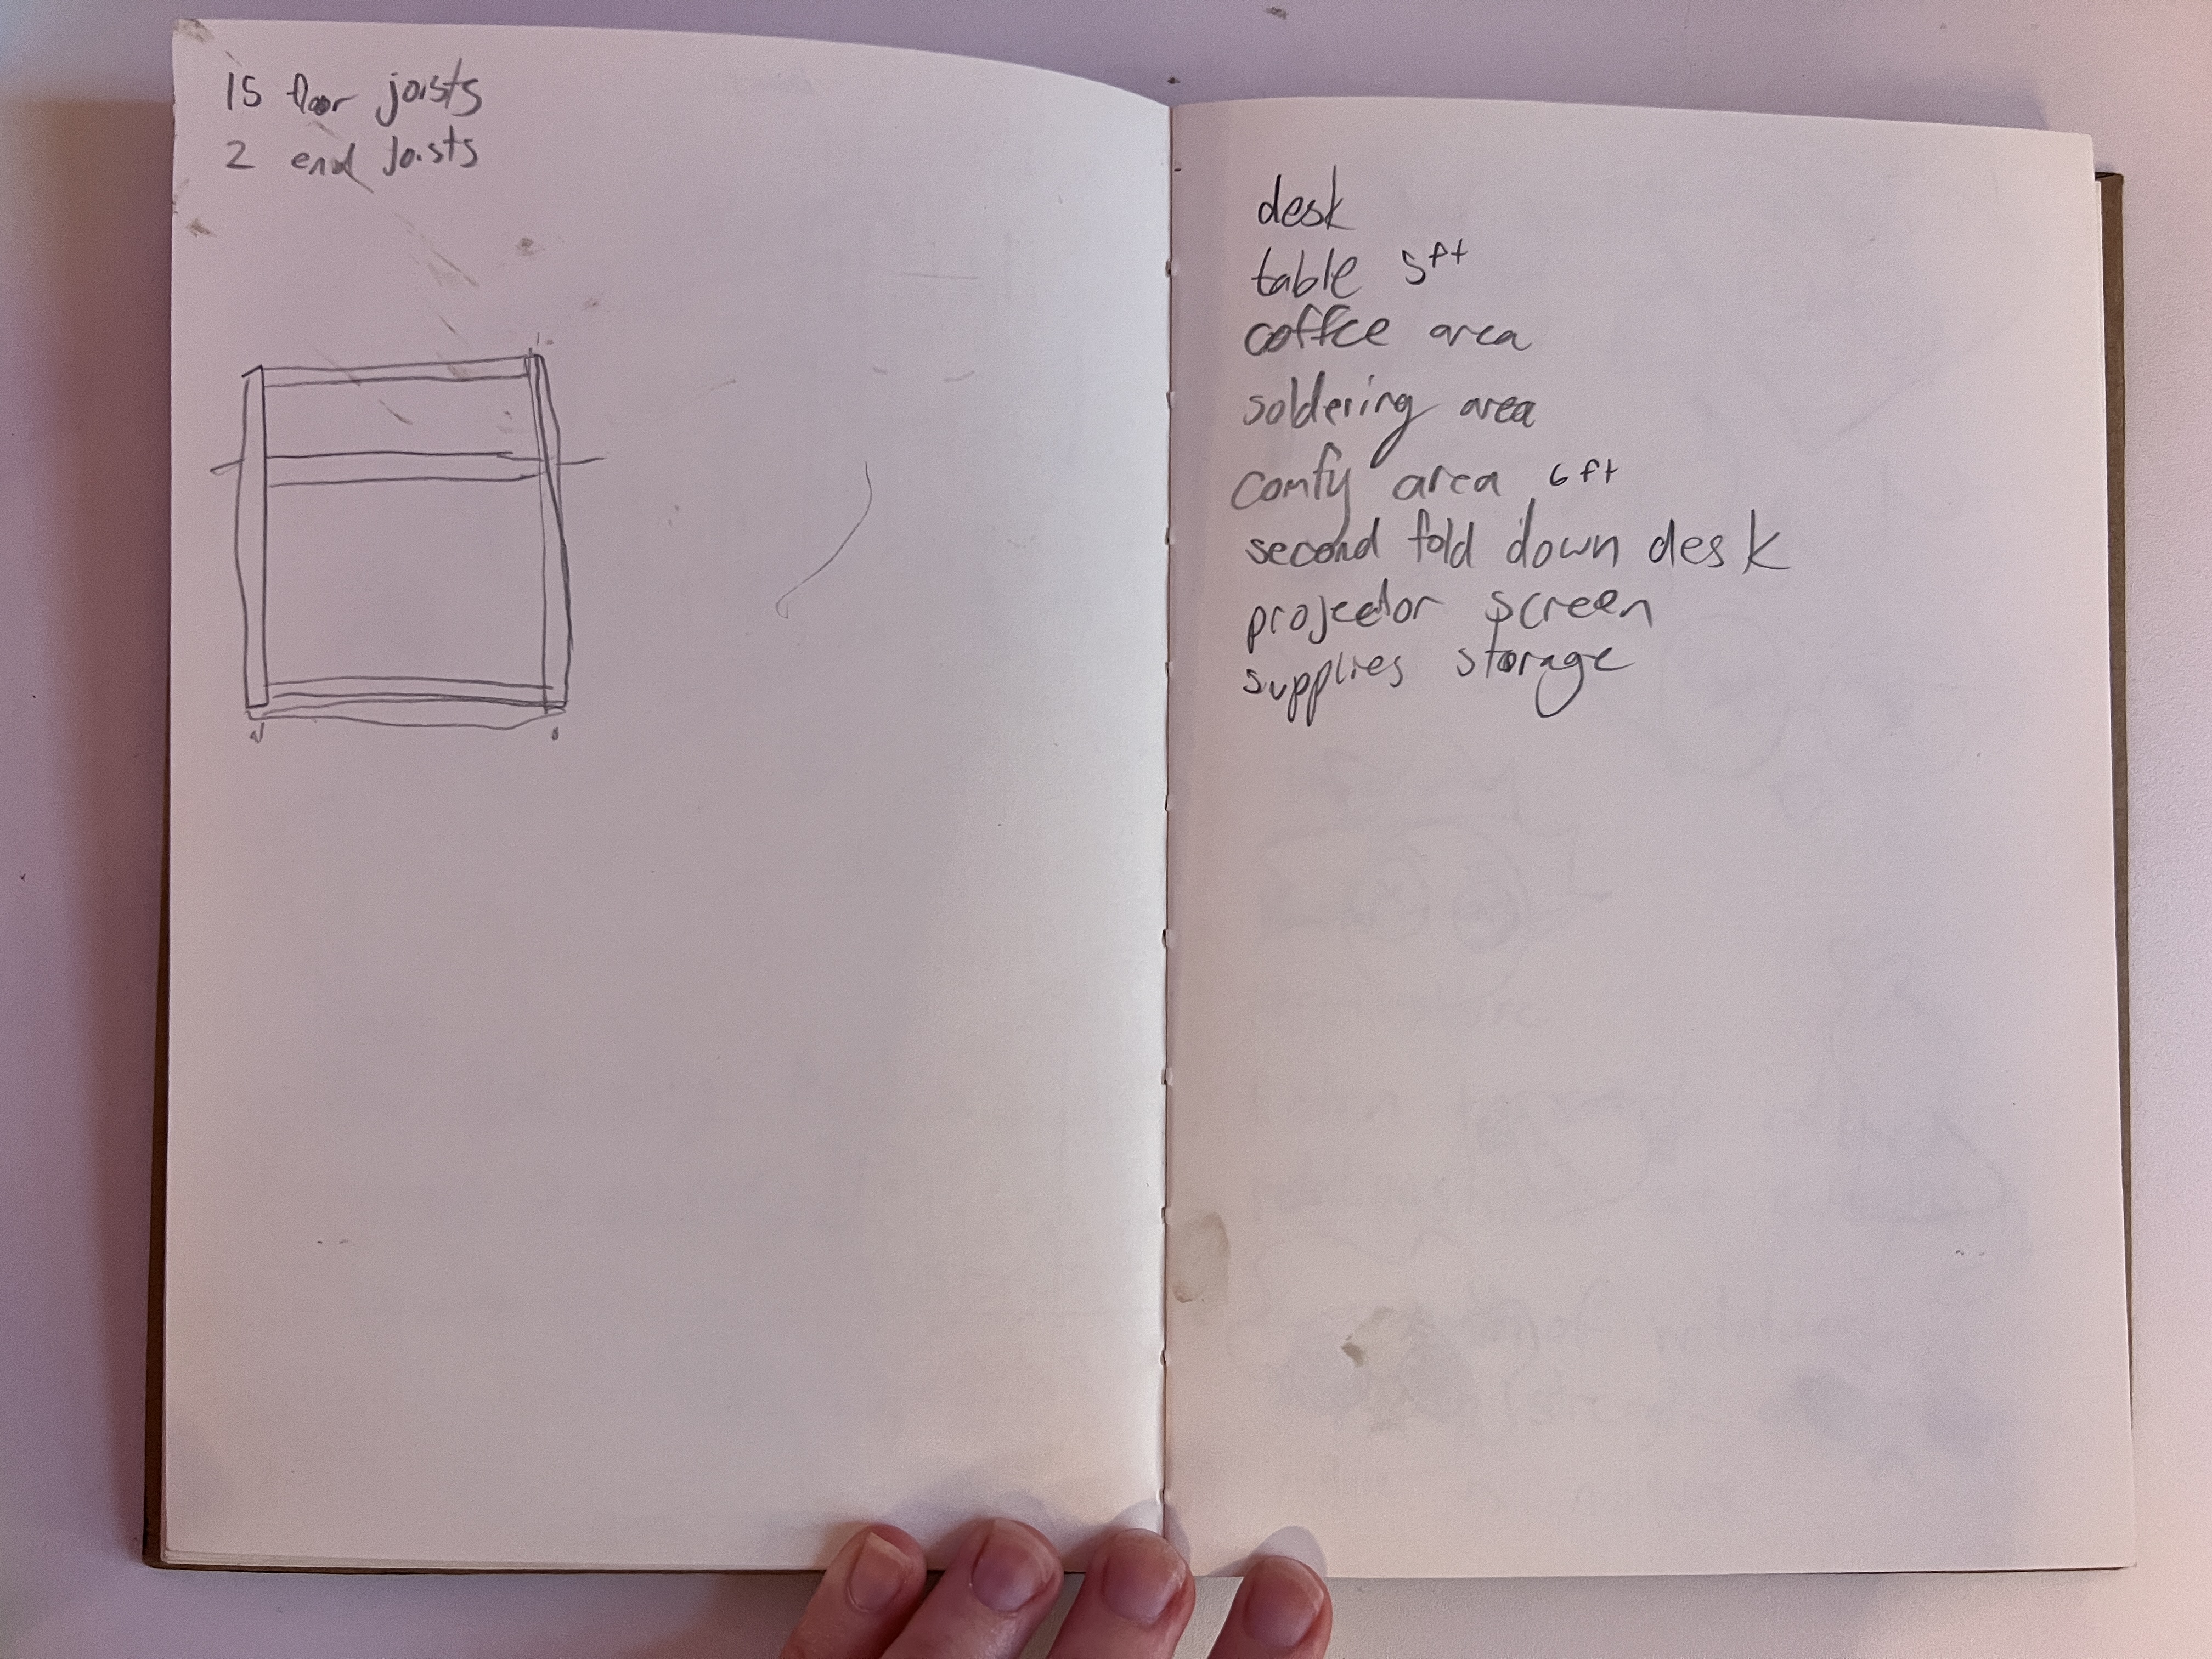 15 floor joists
2 end joists
desk
table 5ft
coffee area
soldering area
comfy area 6ft
second fold down desk
projector screen
supplies storage